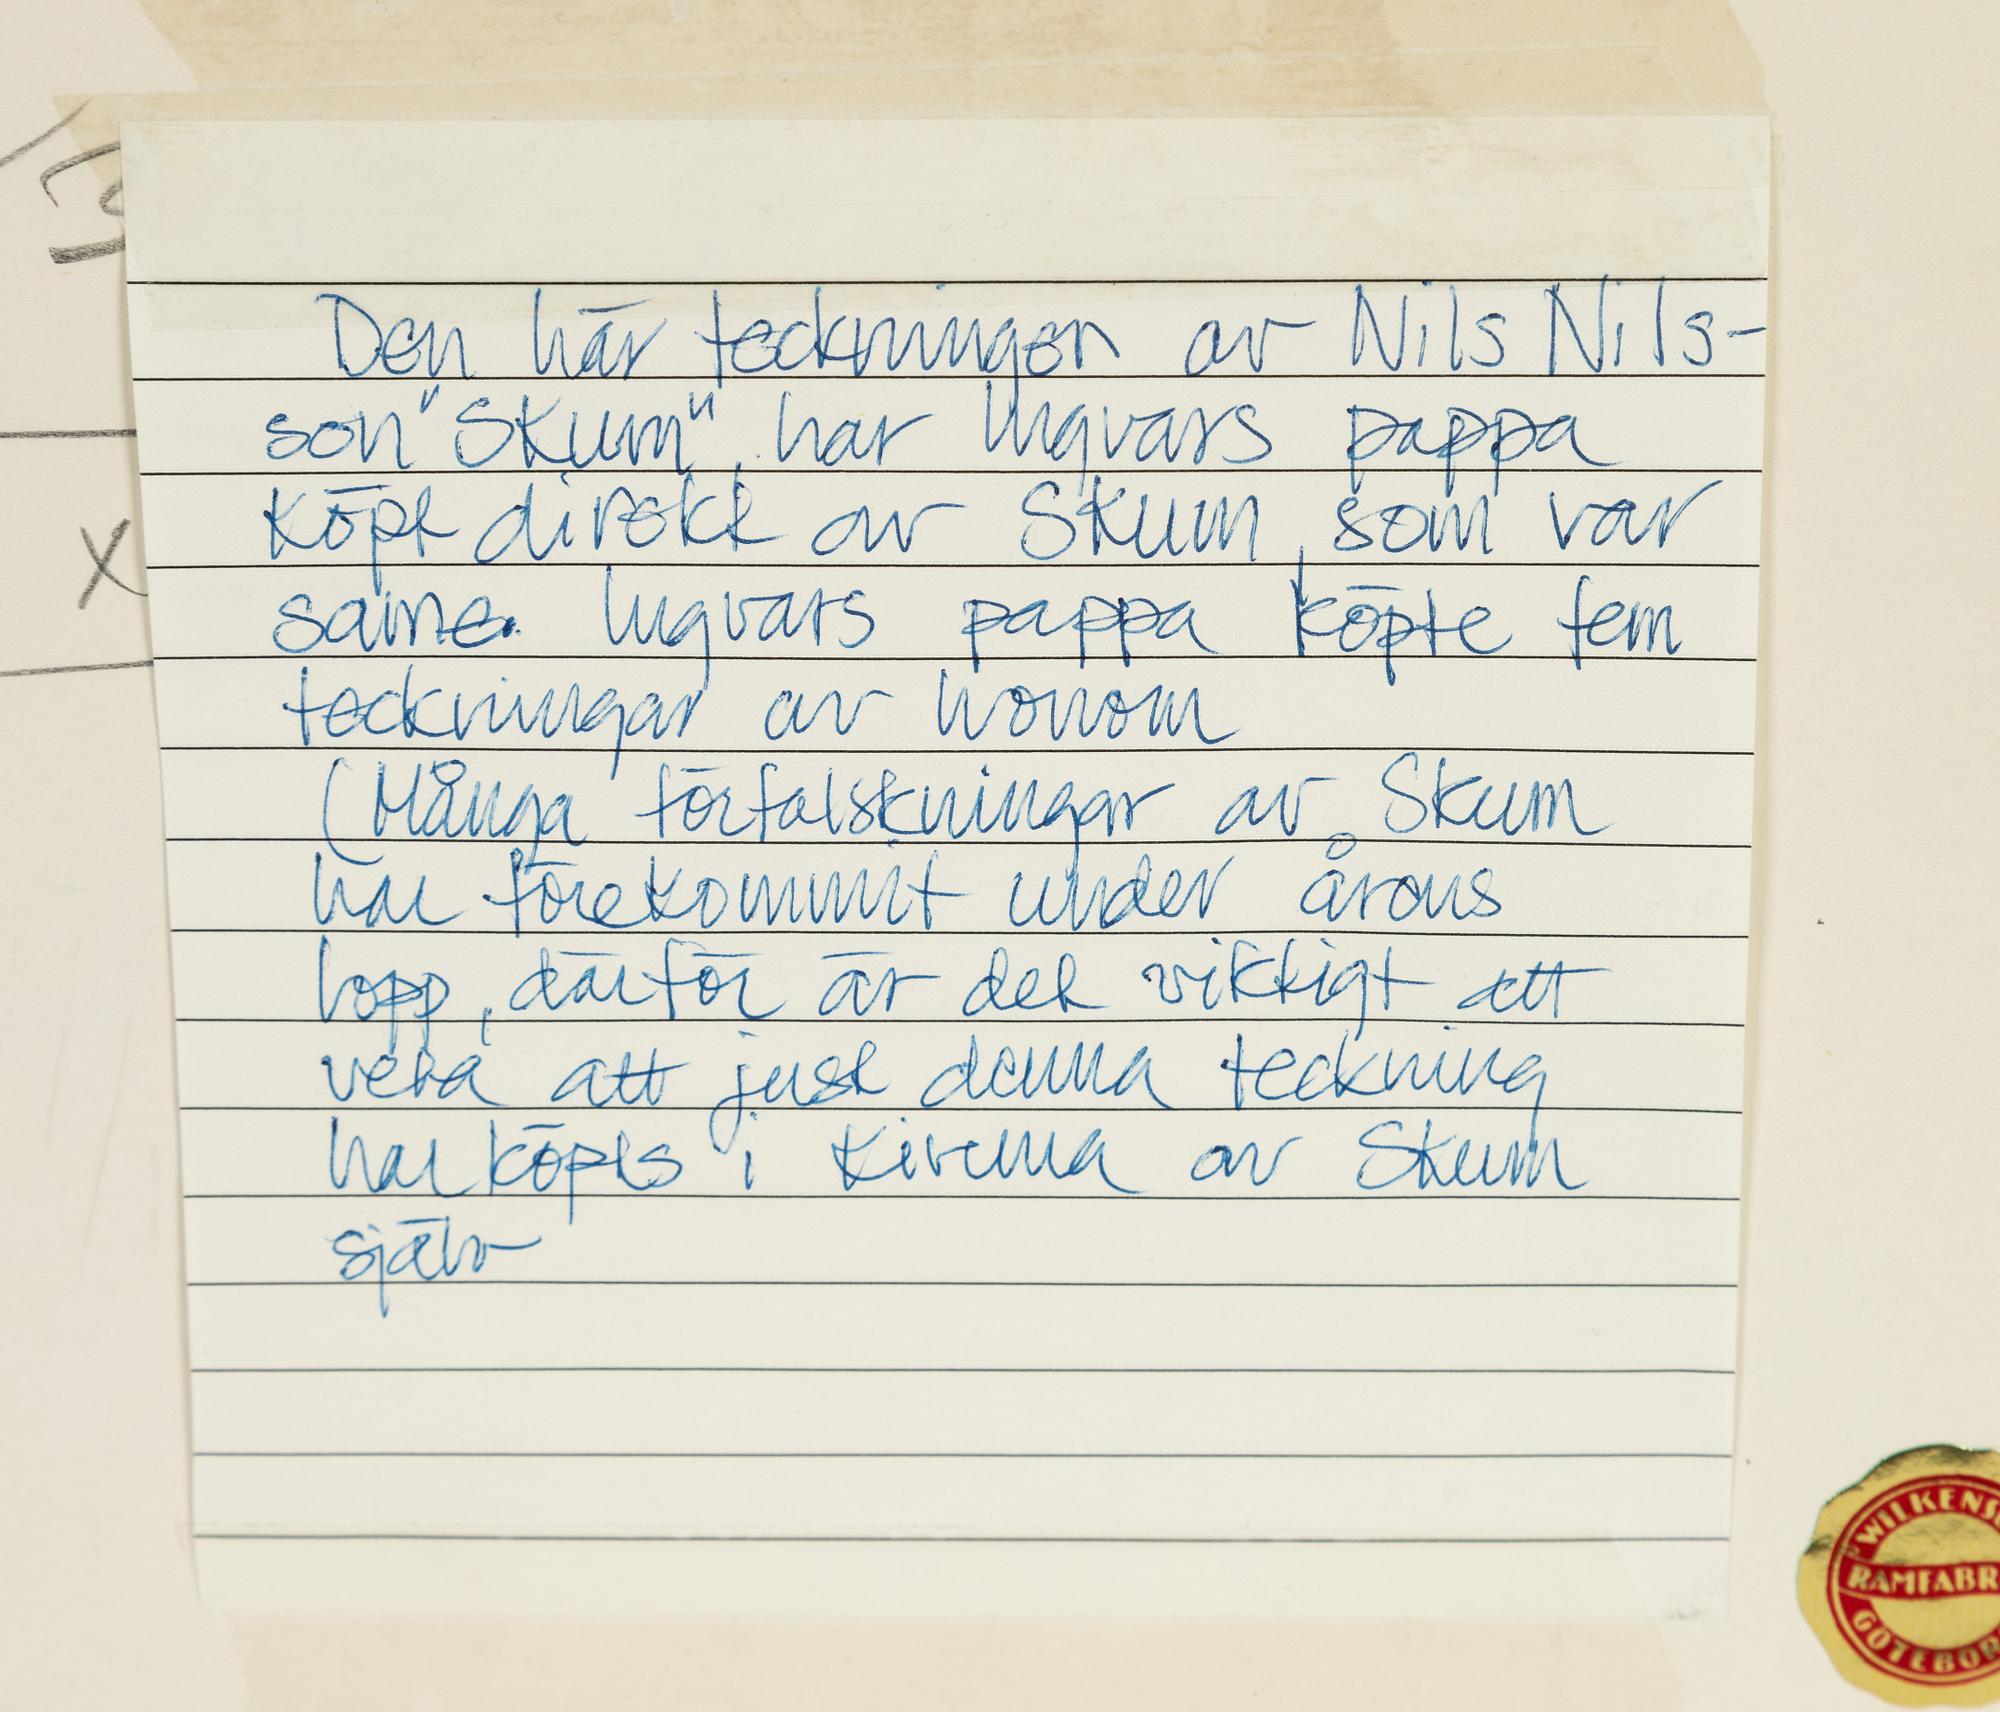 Den här teckningen av Nils Nils-
son "Skum", har Ingvars pappa
köpt direkt av Skum, som var
same. Ingvars pappa köpte fem
teckningar av honom
(Många förfalskningar av Skum
har förekommit under årens
lopp, därför är det viktigt att
veta att just denna teckning
har köpts i Kiruna av Skum
själv
X
WILKENS
RAMFABR
GÖTEBOR